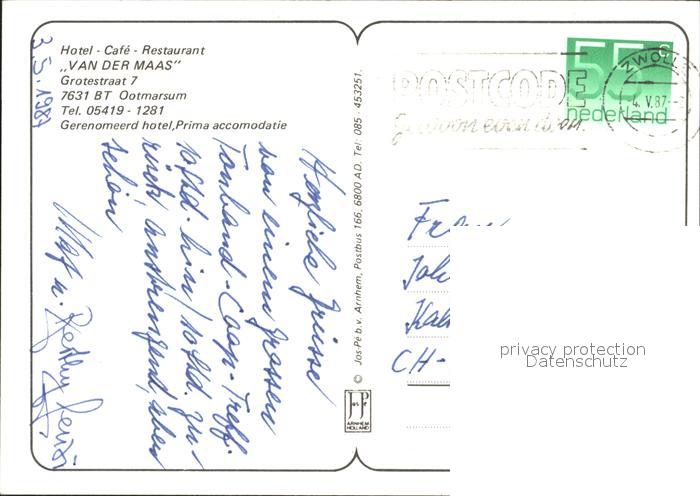 Hotel - Café - Restaurant
„VAN DER MAAS”
Grotestraat 7
7631 BT Ootmarsum
Tel. 05419 - 1281
Gerenomeerd hotel,Prima accomodatie
3.5.1987
Herzliche Grüsse
von einem grossen
Tonband-Coop-Treff.
10 Std. hin, 10 Std. zu-
rück, anstrengend, aber
schön
© Jos-Pé b.v. Arnhem, Postbus 166, 6800 AD. Tel: 085 - 453251.
JosPé
ARNHEM
HOLLAND
POSTCODE
55 c
nederland
ZWOLLE
4.V.87
CH-
privacy protection
Datenschutz